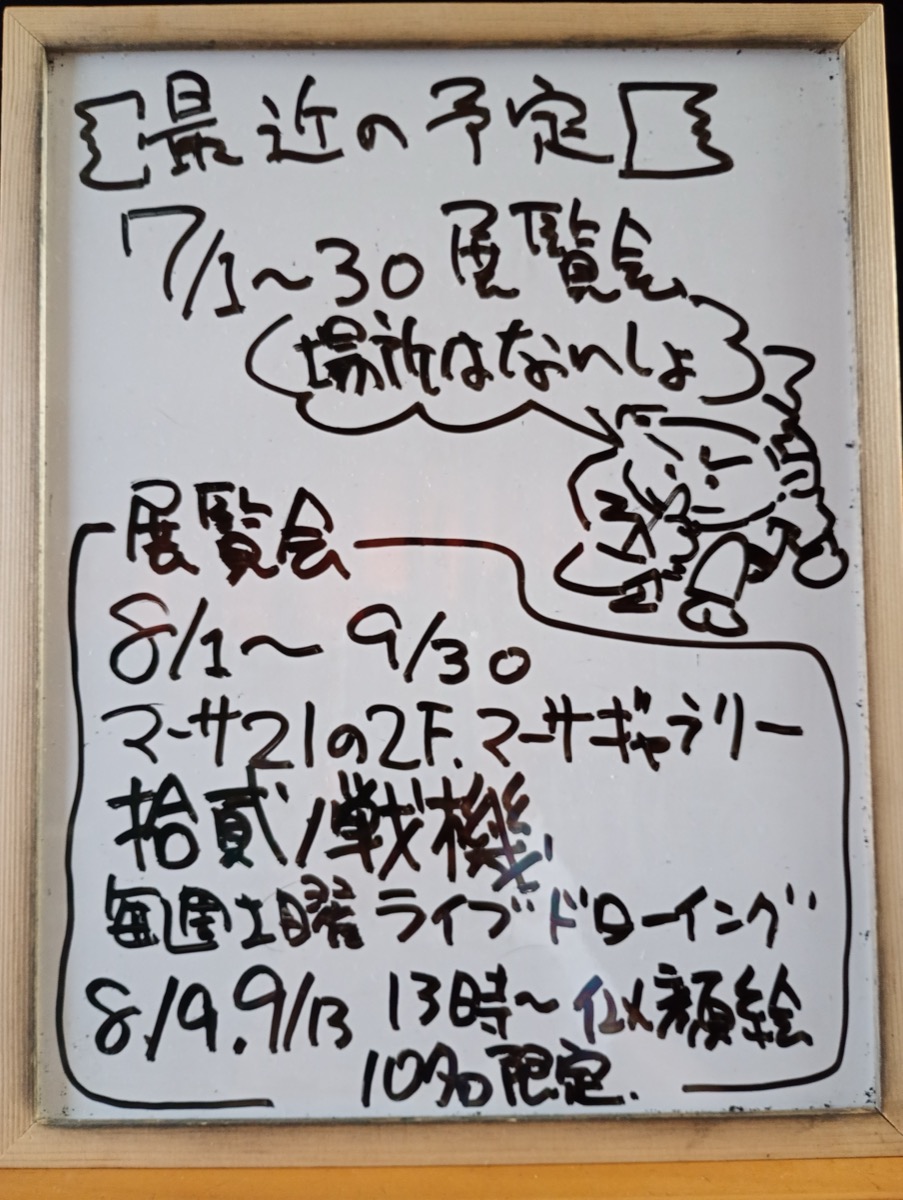 【最近の予定】
7/1〜30 展覧会
(場所はないしょ)
展覧会
8/1〜9/30
マーサ21の2F.マーサギャラリー
拾貳ノ戦機
毎週土曜ライブドローイング
8/9.9/13 13時〜似顔絵
10名限定.